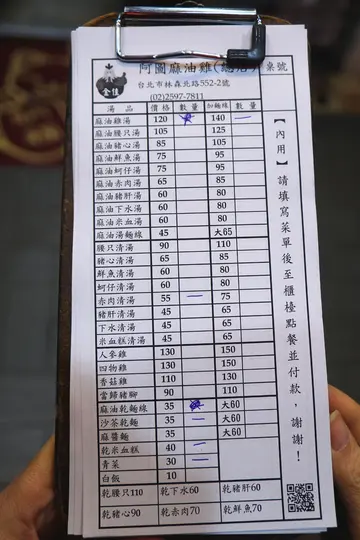 阿圖麻油雞(總店) 桌號
台北市林森北路552-2號
金佳
(02)2597-7811
湯品 價格 數量 加麵線 數量
麻油雞湯 120 140 一
麻油腰只湯 105 125
麻油豬心湯 85 105
麻油鮮魚湯 75 95
麻油蚵仔湯 75 95
麻油赤肉湯 65 85
麻油豬肝湯 60 80
麻油下水湯 60 80
麻油米血湯 60 80
麻油湯麵線 45 大65
腰只清湯 90 110
豬心清湯 65 85
鮮魚清湯 60 80
蚵仔清湯 60 80
赤肉清湯 55 一 75
豬肝清湯 45 65
下水清湯 45 65
米血糕清湯 45 65
人參雞 130 150
四物雞 130 150
香菇雞 110 130
當歸豬腳 90 110
麻油乾麵線 35 大60
沙茶乾麵 35 一 大60
麻醬麵 35 大60
乾米血糕 40 一
青菜 30 一
白飯 10
乾腰只110 乾下水60 乾豬肝60
乾豬心90 乾赤肉70 乾鮮魚70
【內用】請填寫菜單後至櫃檯點餐並付款，謝謝！